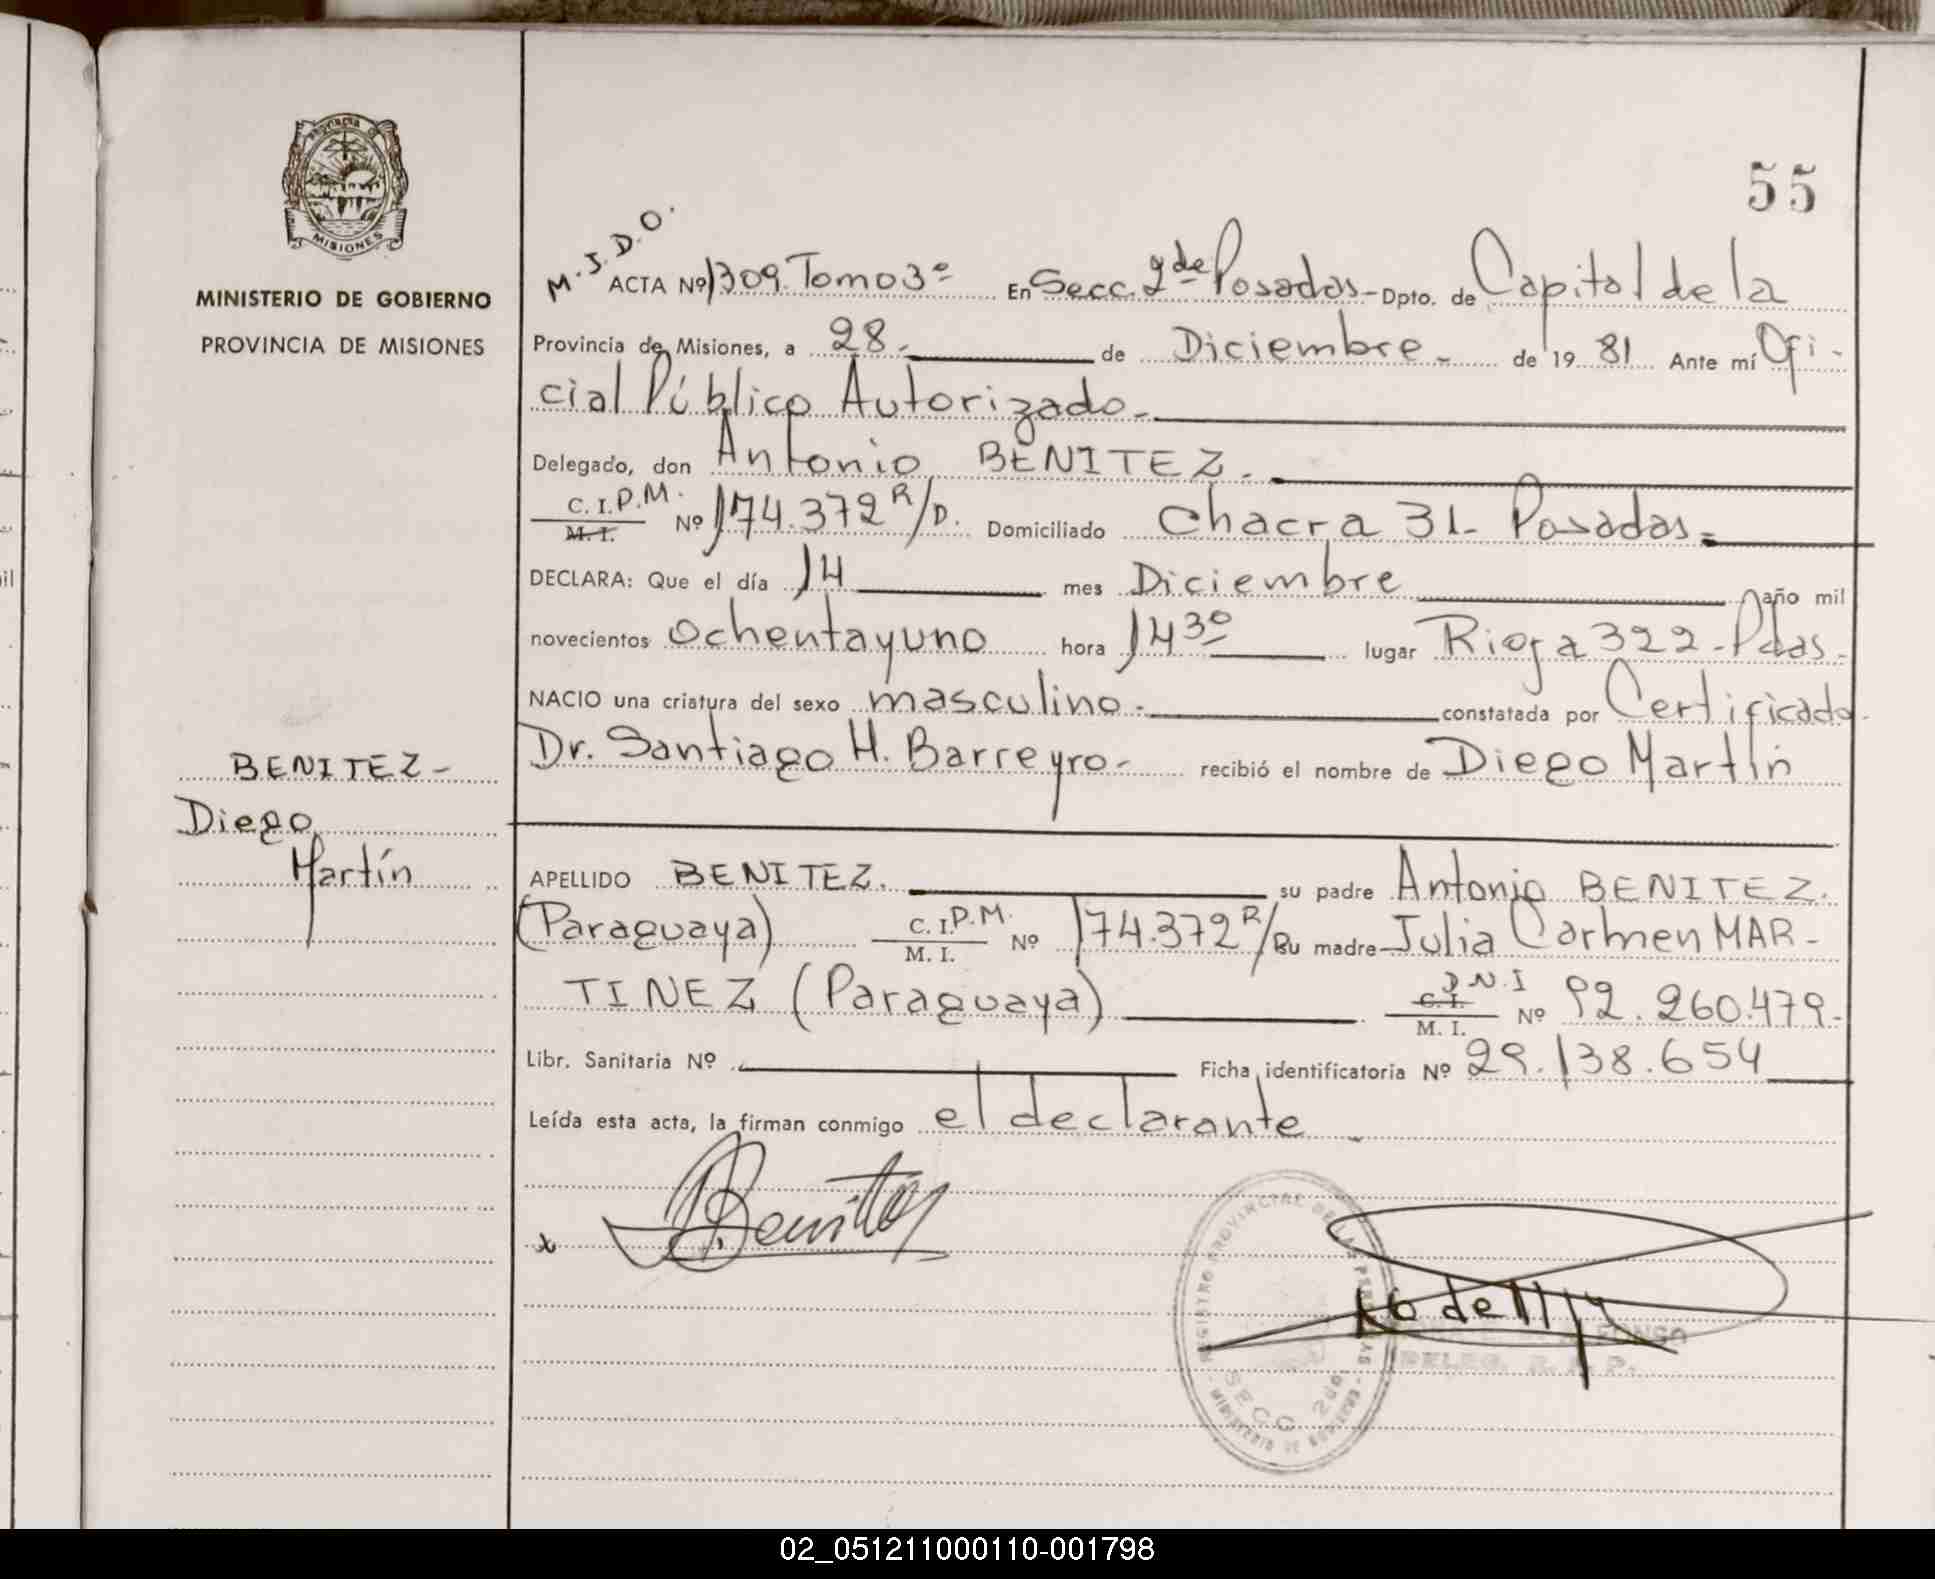 PROVINCIA DE
MISIONES
MINISTERIO DE GOBIERNO
PROVINCIA DE MISIONES
BENITEZ-
Diego
Martín
55
M.J.D.O.
ACTA Nº 1309. Tomo 3º En Secc. 2da Posadas- Dpto. de Capital de la
Provincia de Misiones, a 28.- de Diciembre.- de 19 81 Ante mí Ofi-
cial Público Autorizado.-
Delegado, don Antonio BENITEZ.
C. I. P.M. M. I. Nº 174.372 R/D. Domiciliado Chacra 31- Posadas=
DECLARA: Que el día 14 mes Diciembre año mil
novecientos ochentayuno hora 14 30 lugar Rioja 322-Pdas.
NACIO una criatura del sexo masculino.- constatada por Certificado
Dr. Santiago H. Barreyro.- recibió el nombre de Diego Martín
APELLIDO BENITEZ. su padre Antonio BENITEZ.
(Paraguaya) C. I. P.M. M. I. Nº 174.372 R/D su madre Julia Carmen MAR-
TINEZ (Paraguaya) D.N.I C. I. M. I. Nº 92.260.479.
Libr. Sanitaria Nº Ficha identificatoria Nº 29.138.654
Leída esta acta, la firman conmigo el declarante
x Benitez
REGISTRO PROVINCIAL DE LAS PERSONAS
SECC 2da
MINISTERIO DE GOBIERNO
DELEG. R. P. P.
02_051211000110-001798